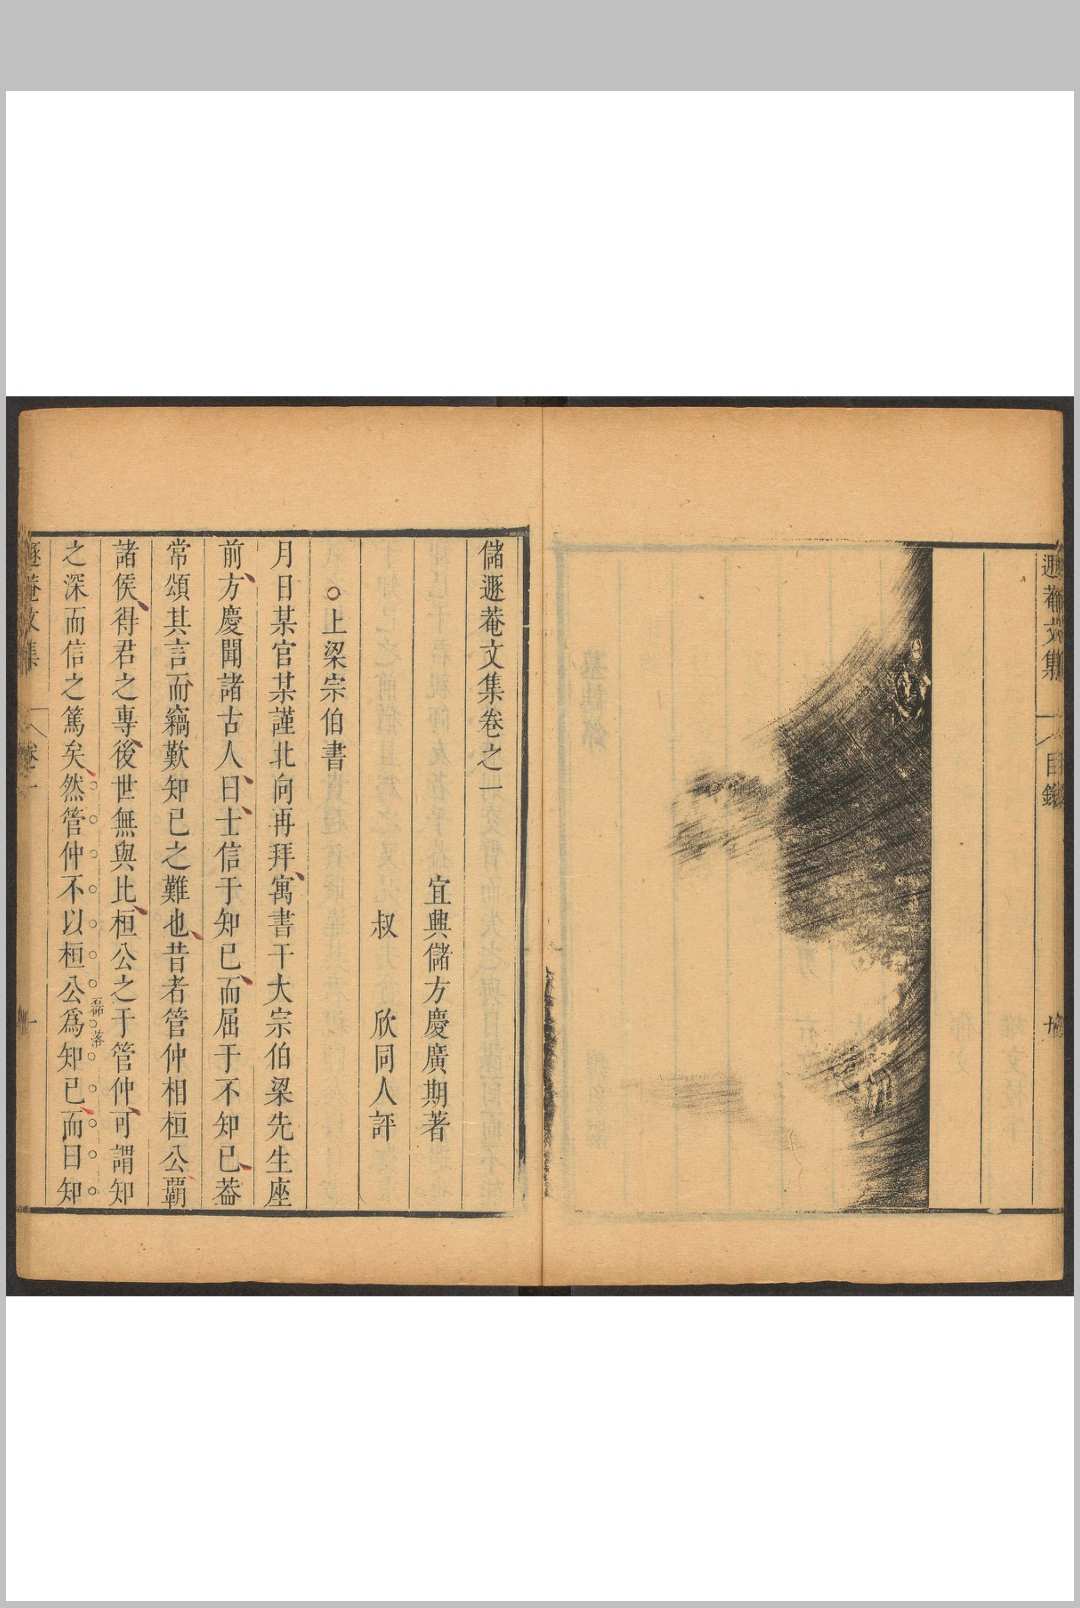 遯菴文集
目錄
儲遯菴文集卷之一
宜興儲方慶廣期著
叔欣同人評
○上梁宗伯書
月日某官某謹北向再拜寓書于大宗伯梁先生座
前方慶聞諸古人曰士信于知已而屈于不知已葢
常頌其言而竊歎知已之難也昔者管仲相桓公覇
諸侯得君之專後世無與比桓公之于管仲可謂知
磊落
之深而信之篤矣然管仲不以桓公爲知已而曰知
遯菴文集
卷一
一